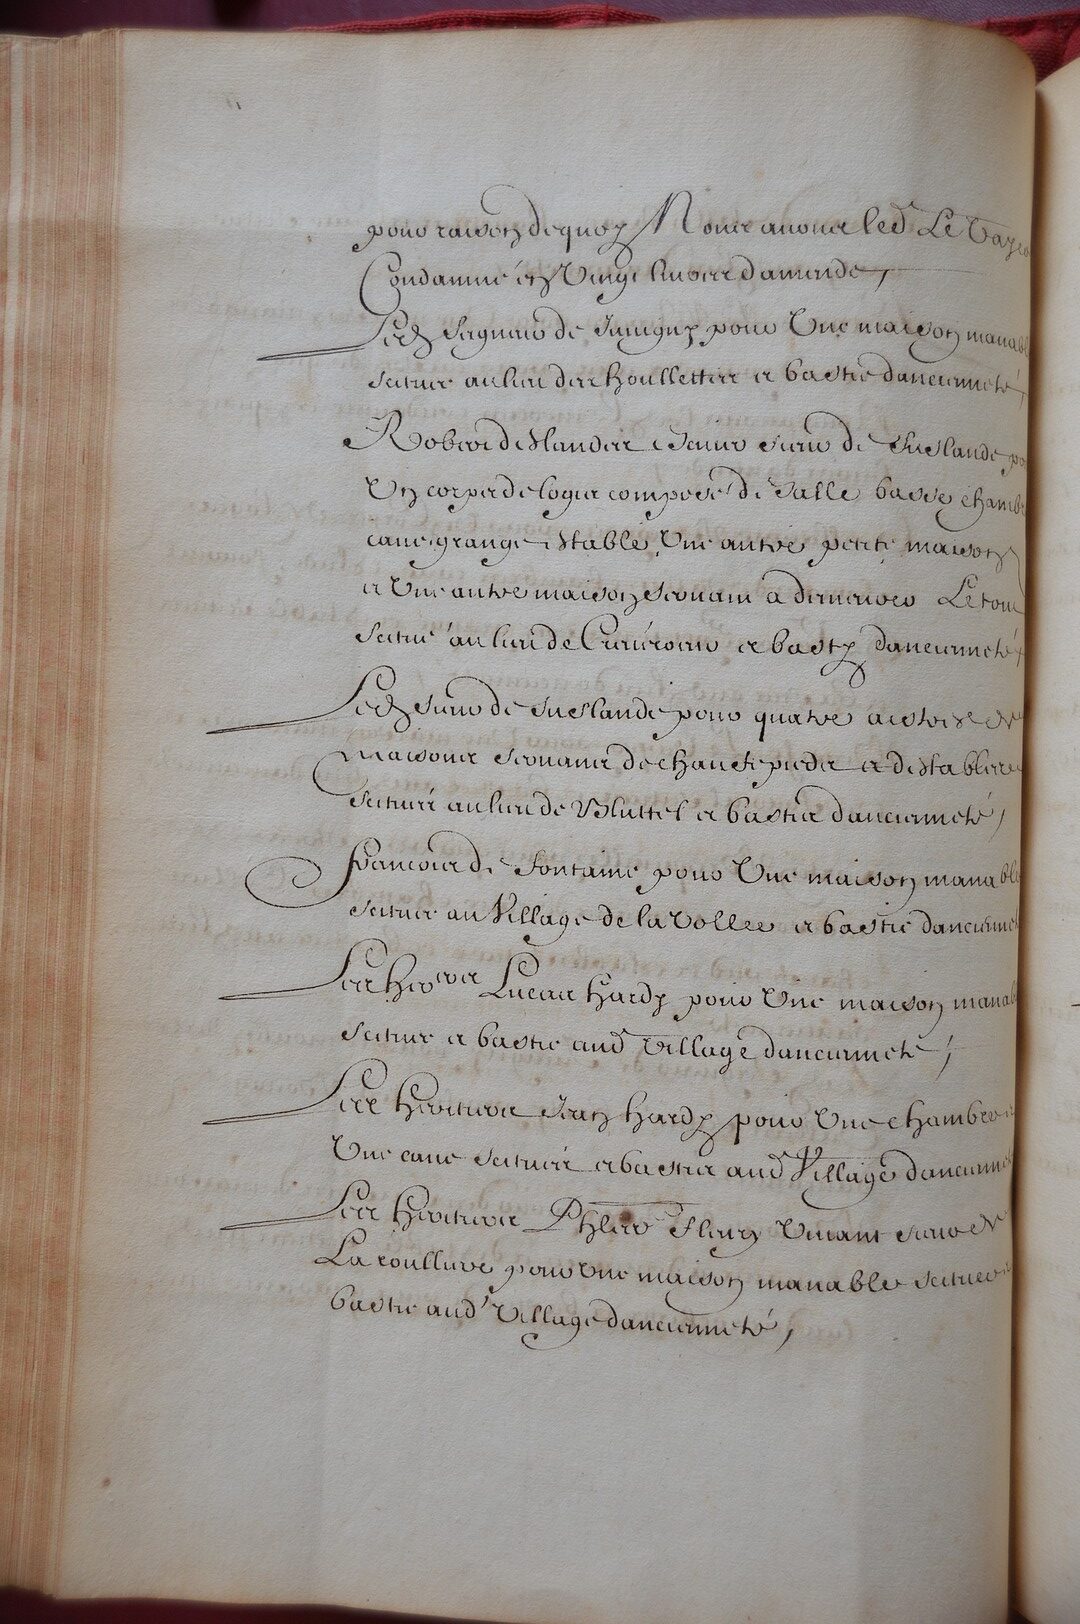 pour raison de quoy Nous avons led. Le Taye
Condamné en Vingt livres d'amende,
Led. Seigneur de Juvigny pour Une maison manab
scituée au lieu des houllettes et bastie d'ancienneté,
Robert de Flandre Escuier sieur de
Un corps de logis composé de Salle basse chamb
cave, grange, estable, Une autre petite maison
et Une autre maison servant à Le tout
scitué au lieu de et basty d'ancienneté,
Led. sieur de pour quatre de
Maisons servants de et d'estables
scituées au lieu de et basties d'ancienneté,
Francois de Fontaine pour Une maison manabl
scituée au Village de la Vollee et bastie d'ancienne
Les her.ers Lucas Hardy pour Une maison manab
scituée et bastie aud. Village d'ancienneté,
Les heritiers Jean Hardy pour Une chambre
Une cave scituées et basties aud. Village d'ancienne
Les heritiers Fleury Vivant sieur de
La pour Une maison manable scituée
bastie aud. Village d'ancienneté,